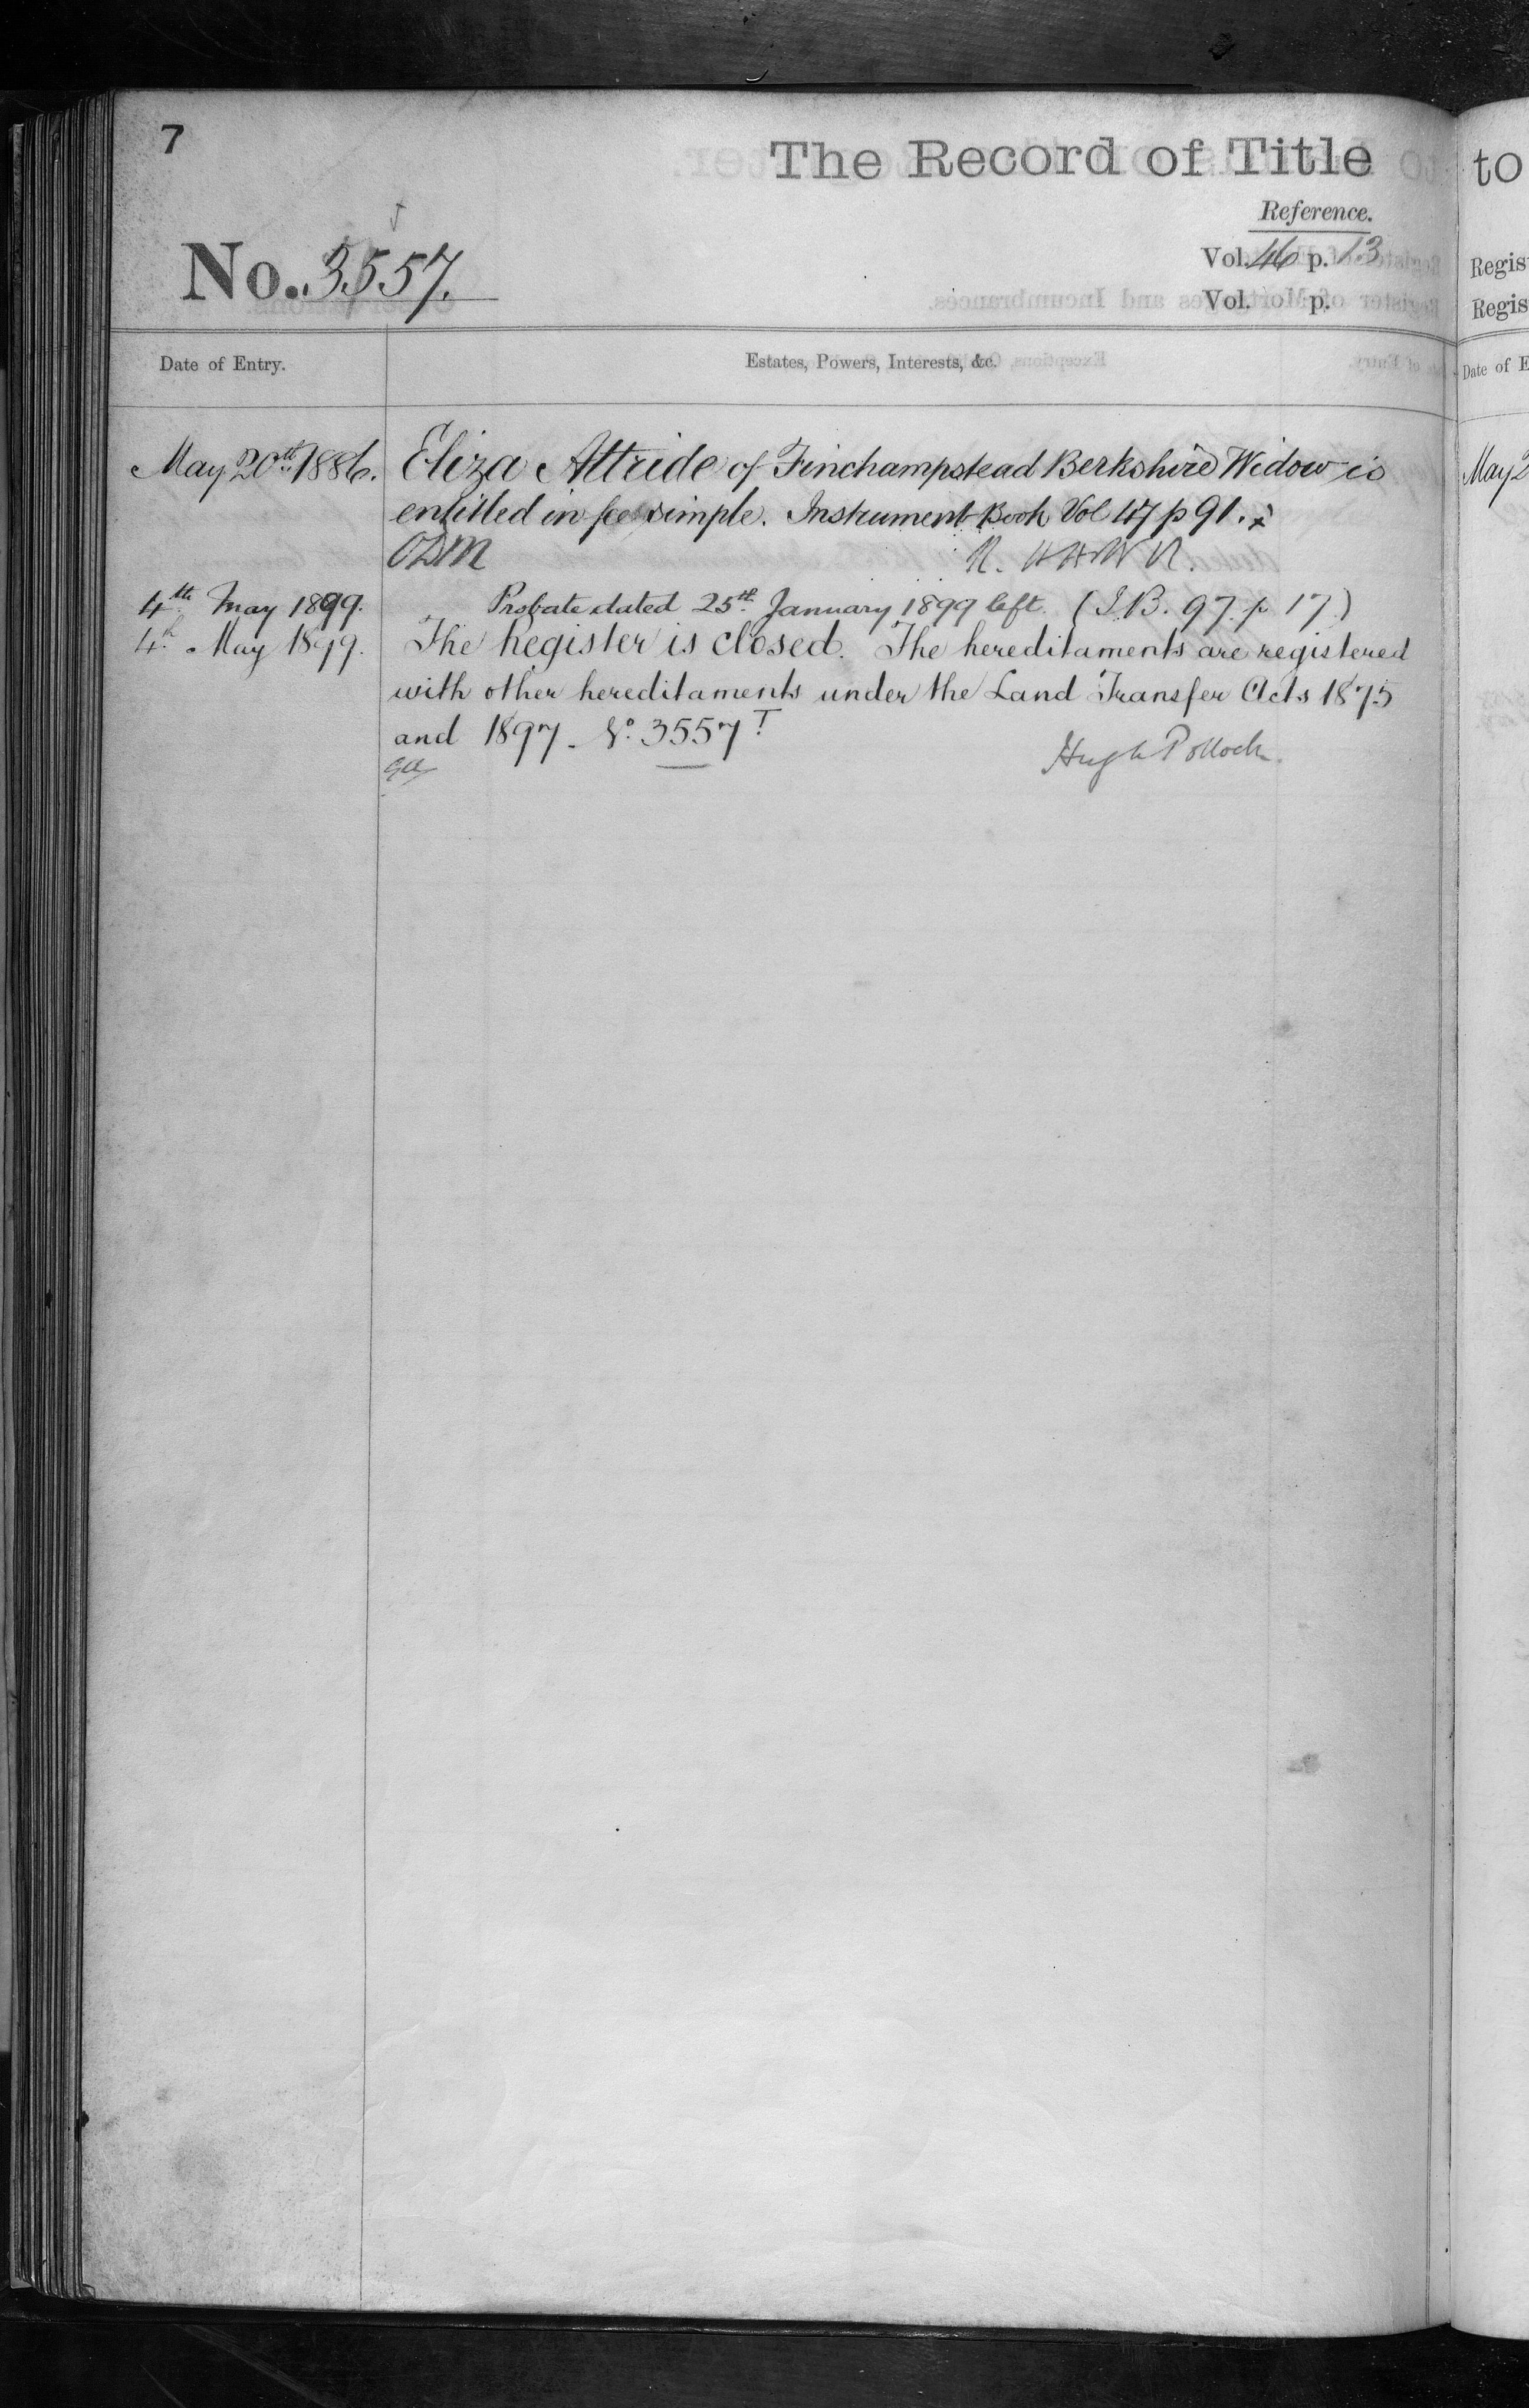 7
The Record of Title
Reference.
No. 3557.
Vol. 46 p. 13
Vol. p.
Date of Entry.
Estates, Powers, Interests, &c.
May 20th 1886. Eliza Attride of Finchampstead Berkshire Widow is
entitled in fee simple. Instrument Book Vol 47 p 91.
4th May 1899. Probate dated 25th January 1899 left. (I.B. 97. p 17)
4th May 1899. The Register is closed. The hereditaments are registered
with other hereditaments under the Land Transfer Acts 1875
and 1897. No. 3557 T
Hugh Pollock.
to
Regis
Regis
Date of E
May 2